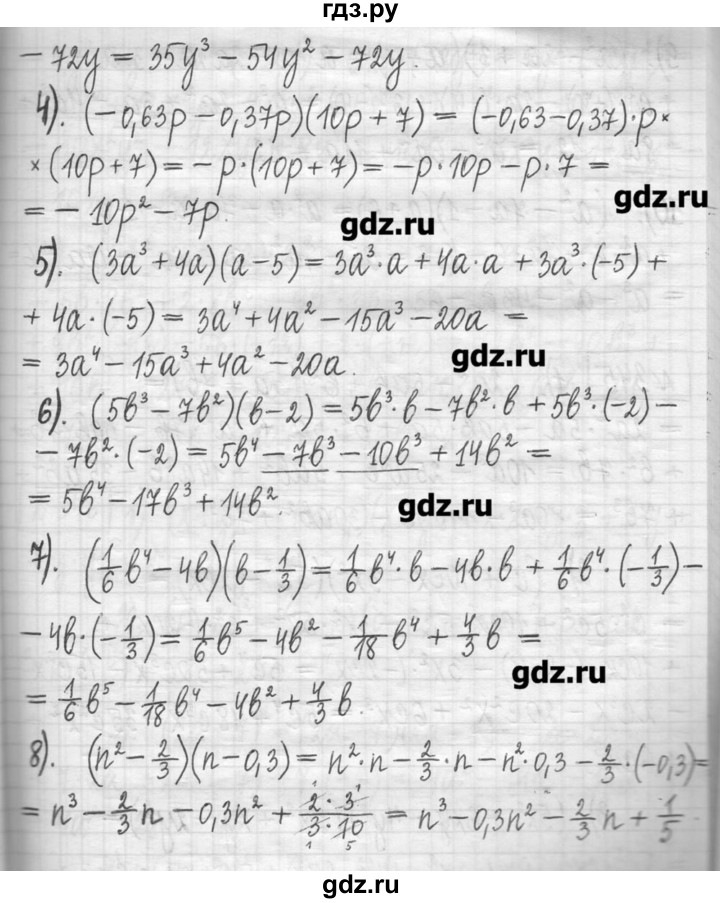 гдз.ру
− 72y = 35y³ − 54y² − 72y.
4). (−0,63p − 0,37p)(10p + 7) = (−0,63−0,37)·p×
×(10p+7) = −p·(10p+7) = −p·10p − p·7 =
= − 10p² − 7p.
gdz.ru
gdz.ru
5). (3a³ + 4a)(a − 5) = 3a³·a + 4a·a + 3a³·(−5) +
+ 4a·(−5) = 3a⁴ + 4a² − 15a³ − 20a =
= 3a⁴ − 15a³ + 4a² − 20a.
gdz.ru
6). (5b³ − 7b²)(b − 2) = 5b³·b − 7b²·b + 5b³·(−2) −
− 7b²·(−2) = 5b⁴ − 7b³ − 10b³ + 14b² =
= 5b⁴ − 17b³ + 14b².
gdz.ru
7). (1/6 b⁴ − 4b)(b − 1/3) = 1/6 b⁴·b − 4b·b + 1/6 b⁴·(−1/3) −
− 4b·(−1/3) = 1/6 b⁵ − 4b² − 1/18 b⁴ + 4/3 b =
gdz.ru
= 1/6 b⁵ − 1/18 b⁴ − 4b² + 4/3 b.
8). (n² − 2/3)(n − 0,3) = n²·n − 2/3·n − n²·0,3 − 2/3·(−0,3) =
= n³ − 2/3 n − 0,3n² + 2·3/3·10 = n³ − 0,3n² − 2/3 n + 1/5
gdz.ru